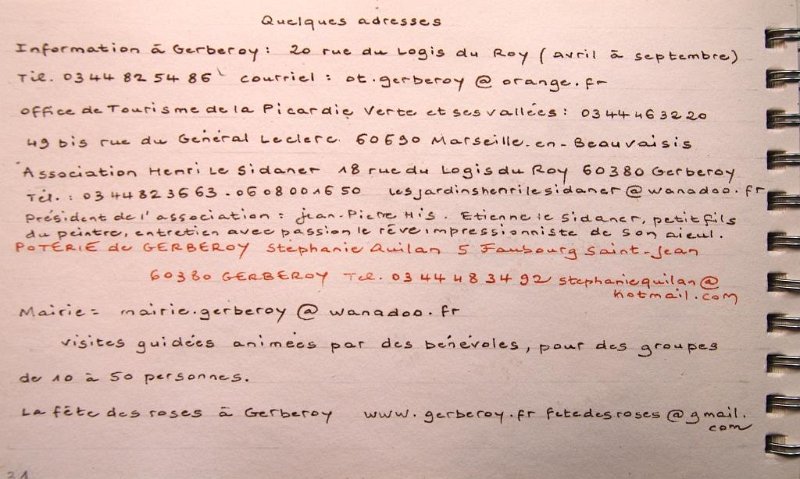 Quelques adresses
Information à Gerberoy : 20 rue du Logis du Roy ( avril à septembre )
Tél. 03 44 82 54 86 courriel : ot.gerberoy @ orange.fr
Office de Tourisme de la Picardie Verte et ses vallées : 03 44 46 32 20
49 bis rue du Général Leclerc 60690 Marseille-en-Beauvaisis
Association Henri Le Sidaner 18 rue du Logis du Roy 60380 Gerberoy
Tél. : 03 44 82 36 63 - 06 08 00 16 50 lesjardinshenrilesidaner @ wanadoo.fr
Président de l'association : Jean-Pierre His. Etienne le Sidaner, petit fils
du peintre, entretien avec passion le rêve impressionniste de son aïeul.
POTERIE de GERBEROY Stephanie Quilan 5 Faubourg Saint-Jean
60380 GERBEROY Tel. 03 44 48 34 92 stephaniequilan @
hotmail.com
Mairie = mairie.gerberoy @ wanadoo.fr
visites guidées animées par des bénévoles, pour des groupes
de 10 à 50 personnes.
La fête des roses à Gerberoy www.gerberoy.fr fetedesroses @ gmail.
com